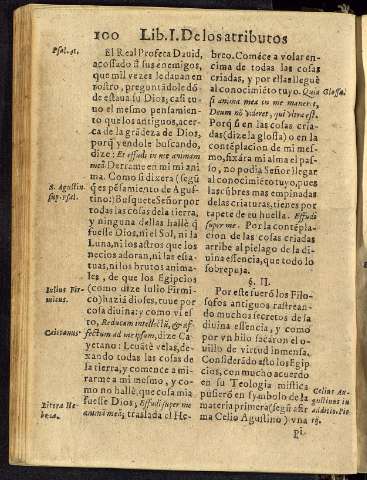 100 Lib. I. De los atributos
Psal. 41.
El Real Profeta Dauid,
acossado d sus enemigos,
que mil vezes le dauan en
rostro, preguntãdole dõ-
de estaua su Dios, casi tu-
uo el mesmo pensamiento
que los antiguos, acer-
ca de la grãdeza de Dios,
porq̃ yendole buscando,
dize: Et effudi in me animam
meã. Derrame en mi mi ani
ma. Como si dixera (segũ
S. Agustin.
sup. psal.
q̃ es pẽsamiento de Agus-
tino) Busquete Señor por
todas las cosas de la tierra,
y ninguna dellas hallè q̃
fuesse Dios, ni el Sol, ni la
Luna, ni los astros que los
necios adoran, ni las esta-
tuas, ni los brutos anima-
les, de que los Egipcios
Iulius Fir-
micus.
(como dize Iulio Firmi-
co) haziã dioses, tuue por
cosa diuina: y como vi es
to, Reducam intellectũ, & af-
Caietanus.
fectum ad meipsum, dize Ca-
yetano: Leuãtè velas, de-
xando todas las cosas de
la tierra, y comence a mi-
rarme a mi mesmo, y co-
mo no hallè, que cosa mia
Litera He-
brea.
fuesse Dios; Effudi super me
animã meã; traslada el He-
breo. Comẽce a volar en-
cima de todas las cosas
criadas, y por ellas lleguè
al conocimiẽto tuyo. Quia
Glossa.
si anima mea in me maneret,
Deum nõ videret, qui vltra est.
Porq̃ si en las cosas cria-
das (dize la glossa) o en la
contẽplacion de mi mes-
mo, fixára mi alma el pas-
so, no podia Señor llegar
al conocimiẽto tuyo, pues
las cũbres mas empinadas
de las criaturas, tienes por
tapete de tu huella. Effudi
super me. Por la contẽpla-
cion de las cosas criadas
arribe al pielago de la di-
uina essencia, que todo lo
sobrepuja.
§. II.
Por este fuerõ los Filo-
sofos antiguos rastrean-
do muchos secretos de la
diuina essencia, y como
por vn hilo sacaron el o-
uillo de virtud inmensa.
Considerãdo assi los Egip
cios, con mucho acuerdo
en su Teologia mistica
Celius Au-
gustinus in
additio. Pie
rij.
pusierõ en symbolo de la
materia primera (segũ afir
ma Celio Agustino) vna
pi-